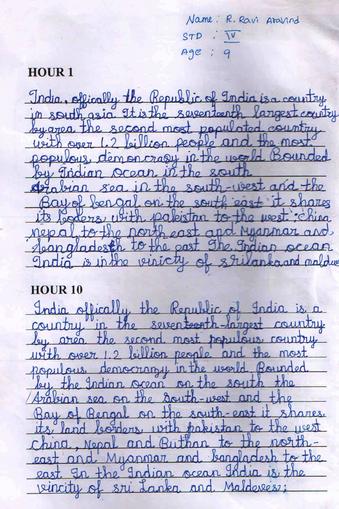 Name : R. Ravi Aravind
STD : IV
Age : 9
HOUR 1
India, offically the Republic of India is a country
in south asia. It is the seventeenth largest country
by area the second most populated country
with over 1.2 billion people and the most
populous democrazy in the world Bounded
by Indian ocean in the south
Arabian sea in the south-west and the
Bay of bengal on the south east it shares
its boders with pakistan to the west china
nepal to the north east and Myanmar and
bangladesth to the east The Indian ocean
India is in the vinicty of srilanka and maldives
HOUR 10
India offically the Republic of India is a
country in the seventeenth-largest country
by area the second most populous country
with over 1.2 billion people and the most
populous democrazy in the world Bounded
by the Indian ocean on the south the
Arabian sea on the South-west and the
Bay of Bengal on the south-east it shares
its land borders with pakistan to the west
China, Nepal and Buthan to the north-
east and Myanmar and bangladesh to the
east In the Indian ocean India is the
vincity of sri Lanka and Maldeves;